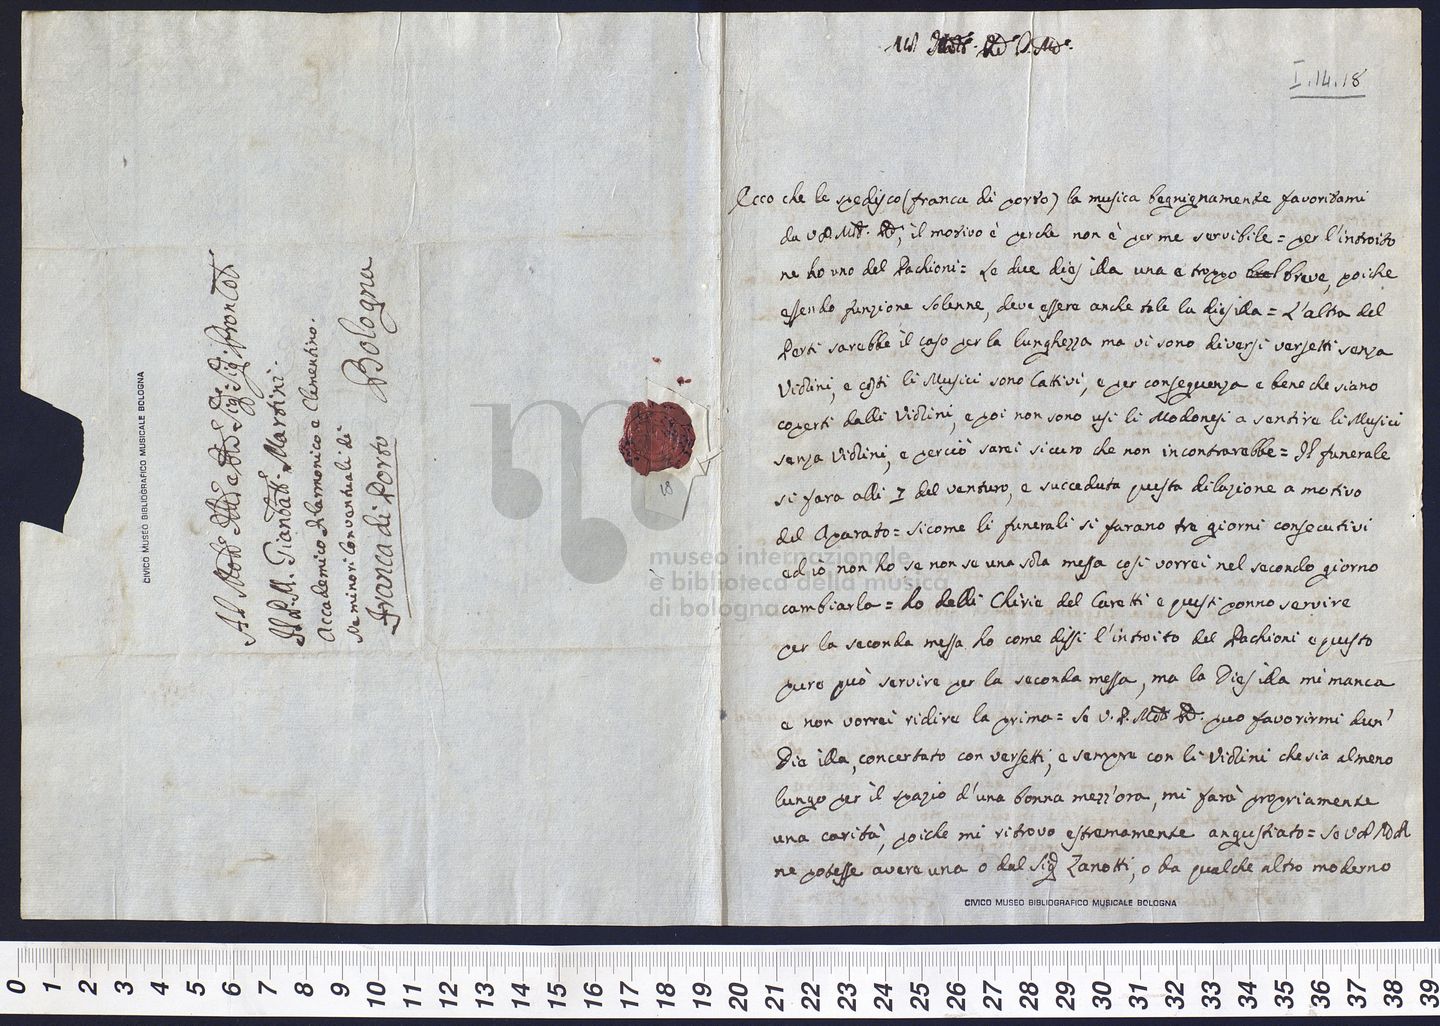 I.14.18
Ecco che le spedisco (franca di porto) la musica begnignamente favoritami
da V. P. M. R., il motivo è perche non è per me servibile = per l'introito
ne ho uno del Pachioni = Le due dies illa una e troppo breve, poiche
essendo funzione solenne, deve essere anche tale la dies illa = L'altra del
Perti sarebbe il caso per la lunghezza ma vi sono diversi versetti senza
Violini, e costi li Musici sono Cattivi, e per conseguenza e bene che siano
coperti dalli Violini, e poi non sono usi li Modonesi a sentire li Musici
senza Violini, e perciò sarei sicuro che non incontrarebbe = Il funerale
si fara alli 7 del venturo, e succeduta questa dilazione a motivo
del Aparato = sicome li funerali si farano tre giorni consecutivi
ed io non ho se non se una sola messa cosi vorrei nel secondo giorno
cambiarla = ho delli Chirie del Caretti e questi ponno servire
per la seconda messa ho come dissi l'introito del Pachioni e questo
pure può servire per la seconda messa, ma la Dies illa mi manca
e non vorrei ridire la prima = se V. P. M. R. puo favorirmi d'un'
Die illa, concertato con versetti, e sempre con li Violini che sia almeno
lungo per il spazio d'una bonna mezz'ora, mi farà propriamente
una carità, poiche mi ritrovo estremamente angustiato = se V. P. M. R.
ne potesse avere una o dal Sig Zanotti, o da qualche altro moderno
CIVICO MUSEO BIBLIOGRAFICO MUSICALE BOLOGNA
Al Molto Sig. Sig. Pron Col
Il P. M. Giambatt. Martini.
Accademico Filarmonico e Clementino.
Ne minori Conventuali di
Franca di Porto Bologna
CIVICO MUSEO BIBLIOGRAFICO MUSICALE BOLOGNA
18
museo internazionale
e biblioteca della musica
di bologna
0 1 2 3 4 5 6 7 8 9 10 11 12 13 14 15 16 17 18 19 20 21 22 23 24 25 26 27 28 29 30 31 32 33 34 35 36 37 38 39